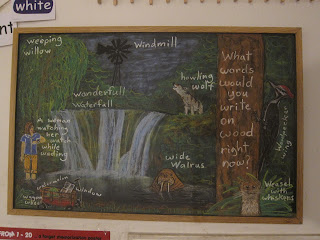 white
weeping
willow
Windmill
howling
wolf
Wonderfull
Waterfall
What
words
would
you
write
on
wood
right
now?
A woman
watching
her
watch
while
wading
Wide
Walrus
Woodpecker
wing
watermelon
window
wagon
wheel
Weasel
with
whiskers